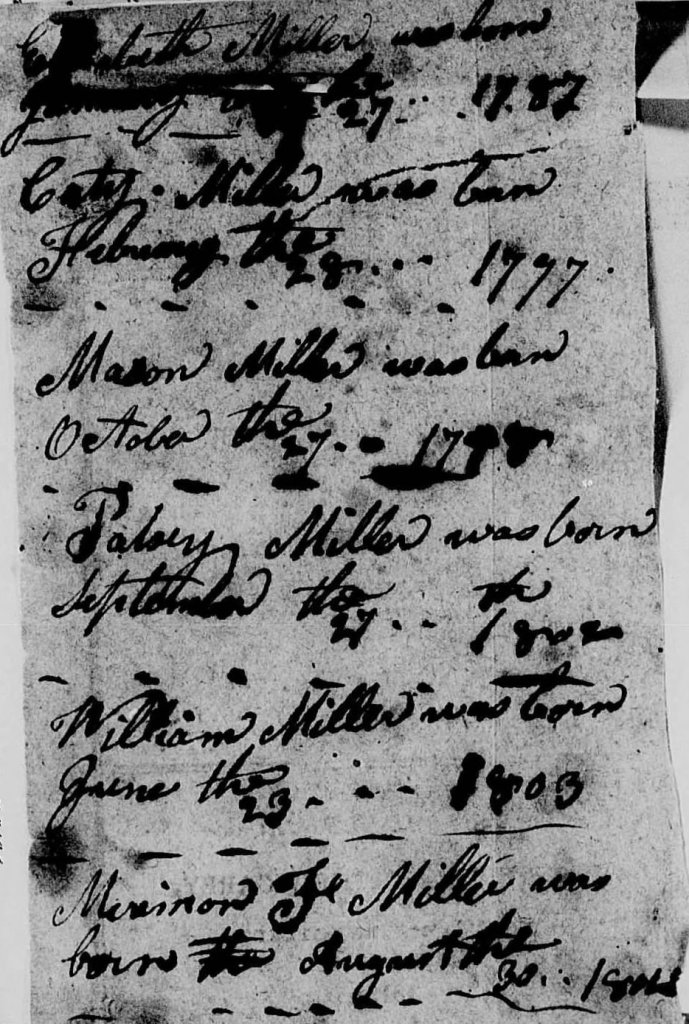 Elizabeth Miller was born
January the 27 .. 1787
Caty Miller was born
Februrary the 28 ... 1797.
Mason Miller was born
October the 27 ..
Patsey Miller was born
September the 27 .. th 1802
William Miller was born
June the 23 . . . 1803
Merimon Miller was
born the August the
30 ..